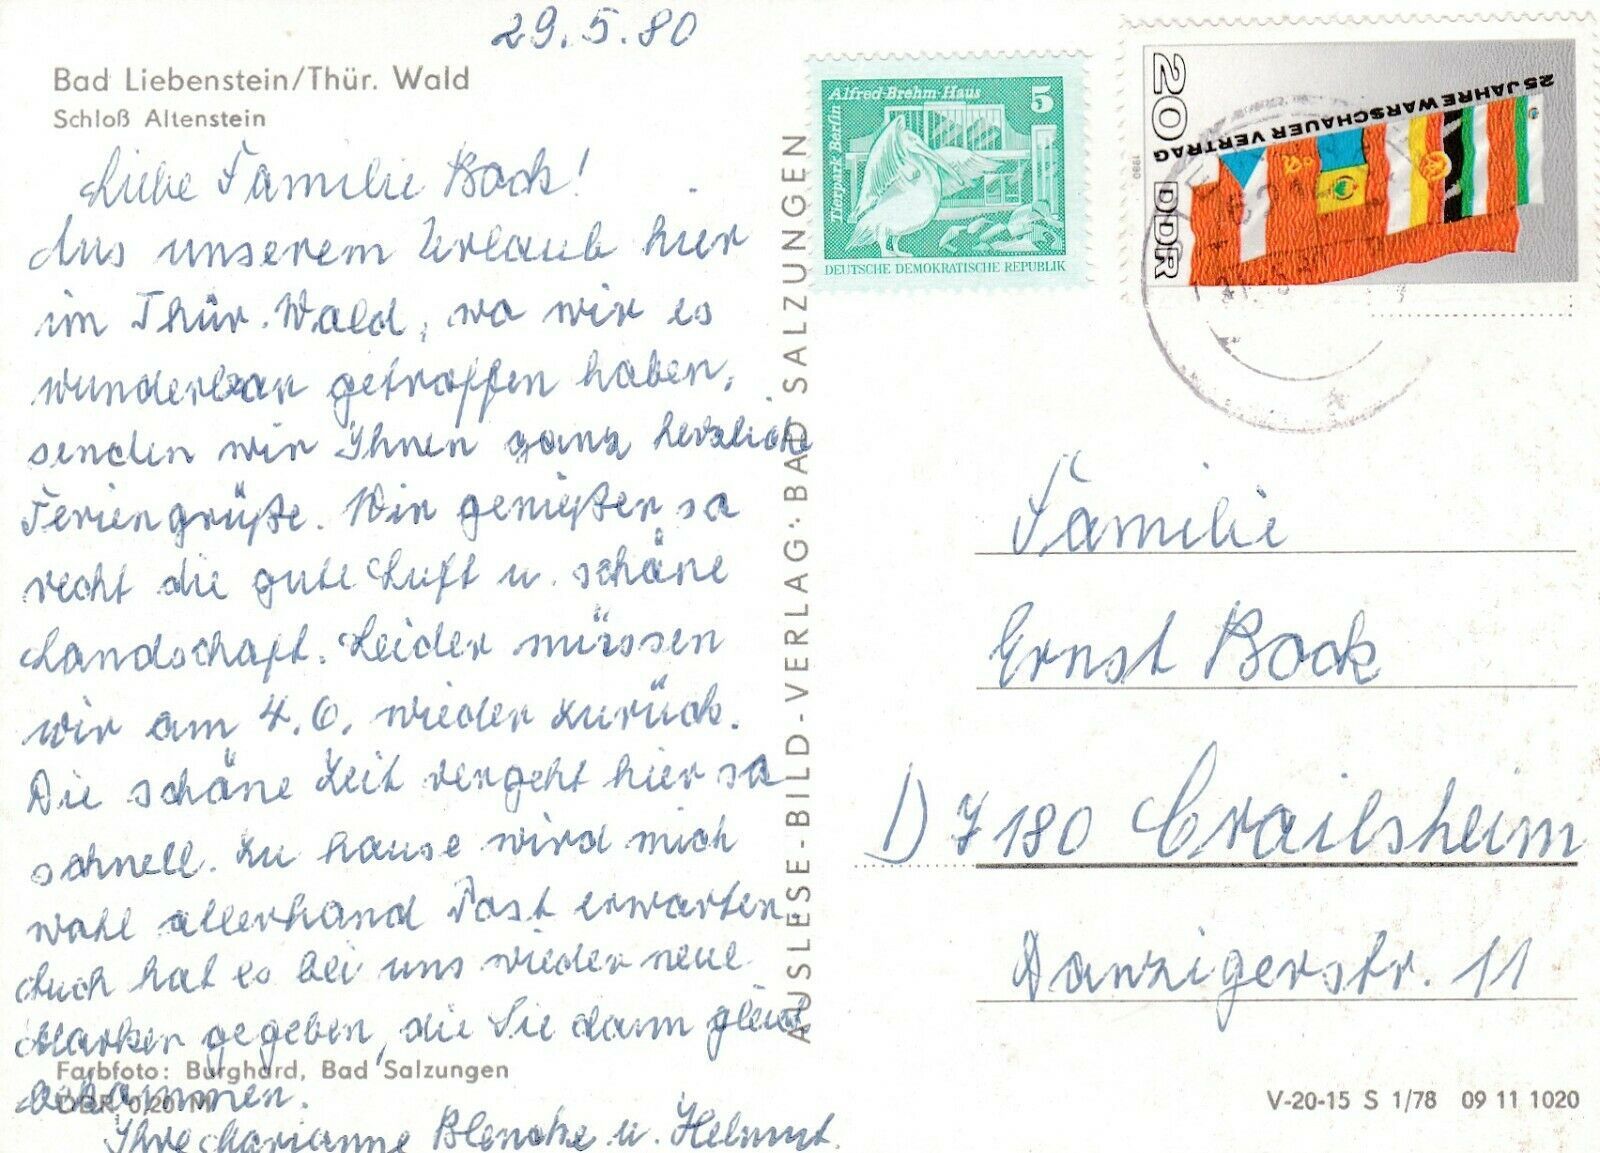 29.5.80
Bad Liebenstein/Thür. Wald
Schloß Altenstein
Liebe Familie Bock!
Aus unserem Urlaub hier
im Thür. Wald, wo wir es
wunderbar getroffen haben,
senden wir Ihnen ganz herzliche
Feriengrüße. Wir genießen so
recht die gute Luft u. schöne
Landschaft. Leider müssen
wir am 4.6. wieder zurück.
Die schöne Zeit vergeht hier so
schnell. Zu hause wird mich
wohl allerhand Post erwarten.
Auch hat es bei uns wieder neue
Marken gegeben, die Sie dann gleich
bekommen.
Ihre Marianne u. Helmut.
Farbfoto: Burghard, Bad Salzungen
DDR 0,20 M
AUSLESE-BILD-VERLAG·BAD SALZUNGEN
Alfred-Brehm-Haus
5
Tierpark Berlin
DEUTSCHE DEMOKRATISCHE REPUBLIK
25 JAHRE WARSCHAUER VERTRAG
20
DDR
1980
Familie
Ernst Bock
D 7180 Crailsheim
Danzigerstr. 11
V-20-15 S 1/78 09 11 1020